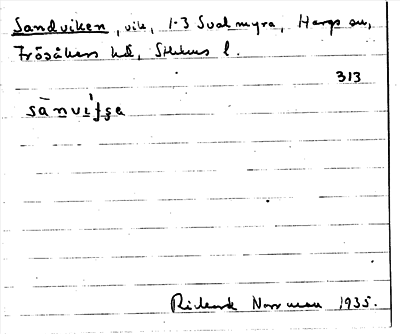 Sandviken, vik, 1-3 Svalmyra, Hargs sn,
Frösåkers hd, Sthlms l.
313
sānvìʄʂe
Rickard Norrman 1935.